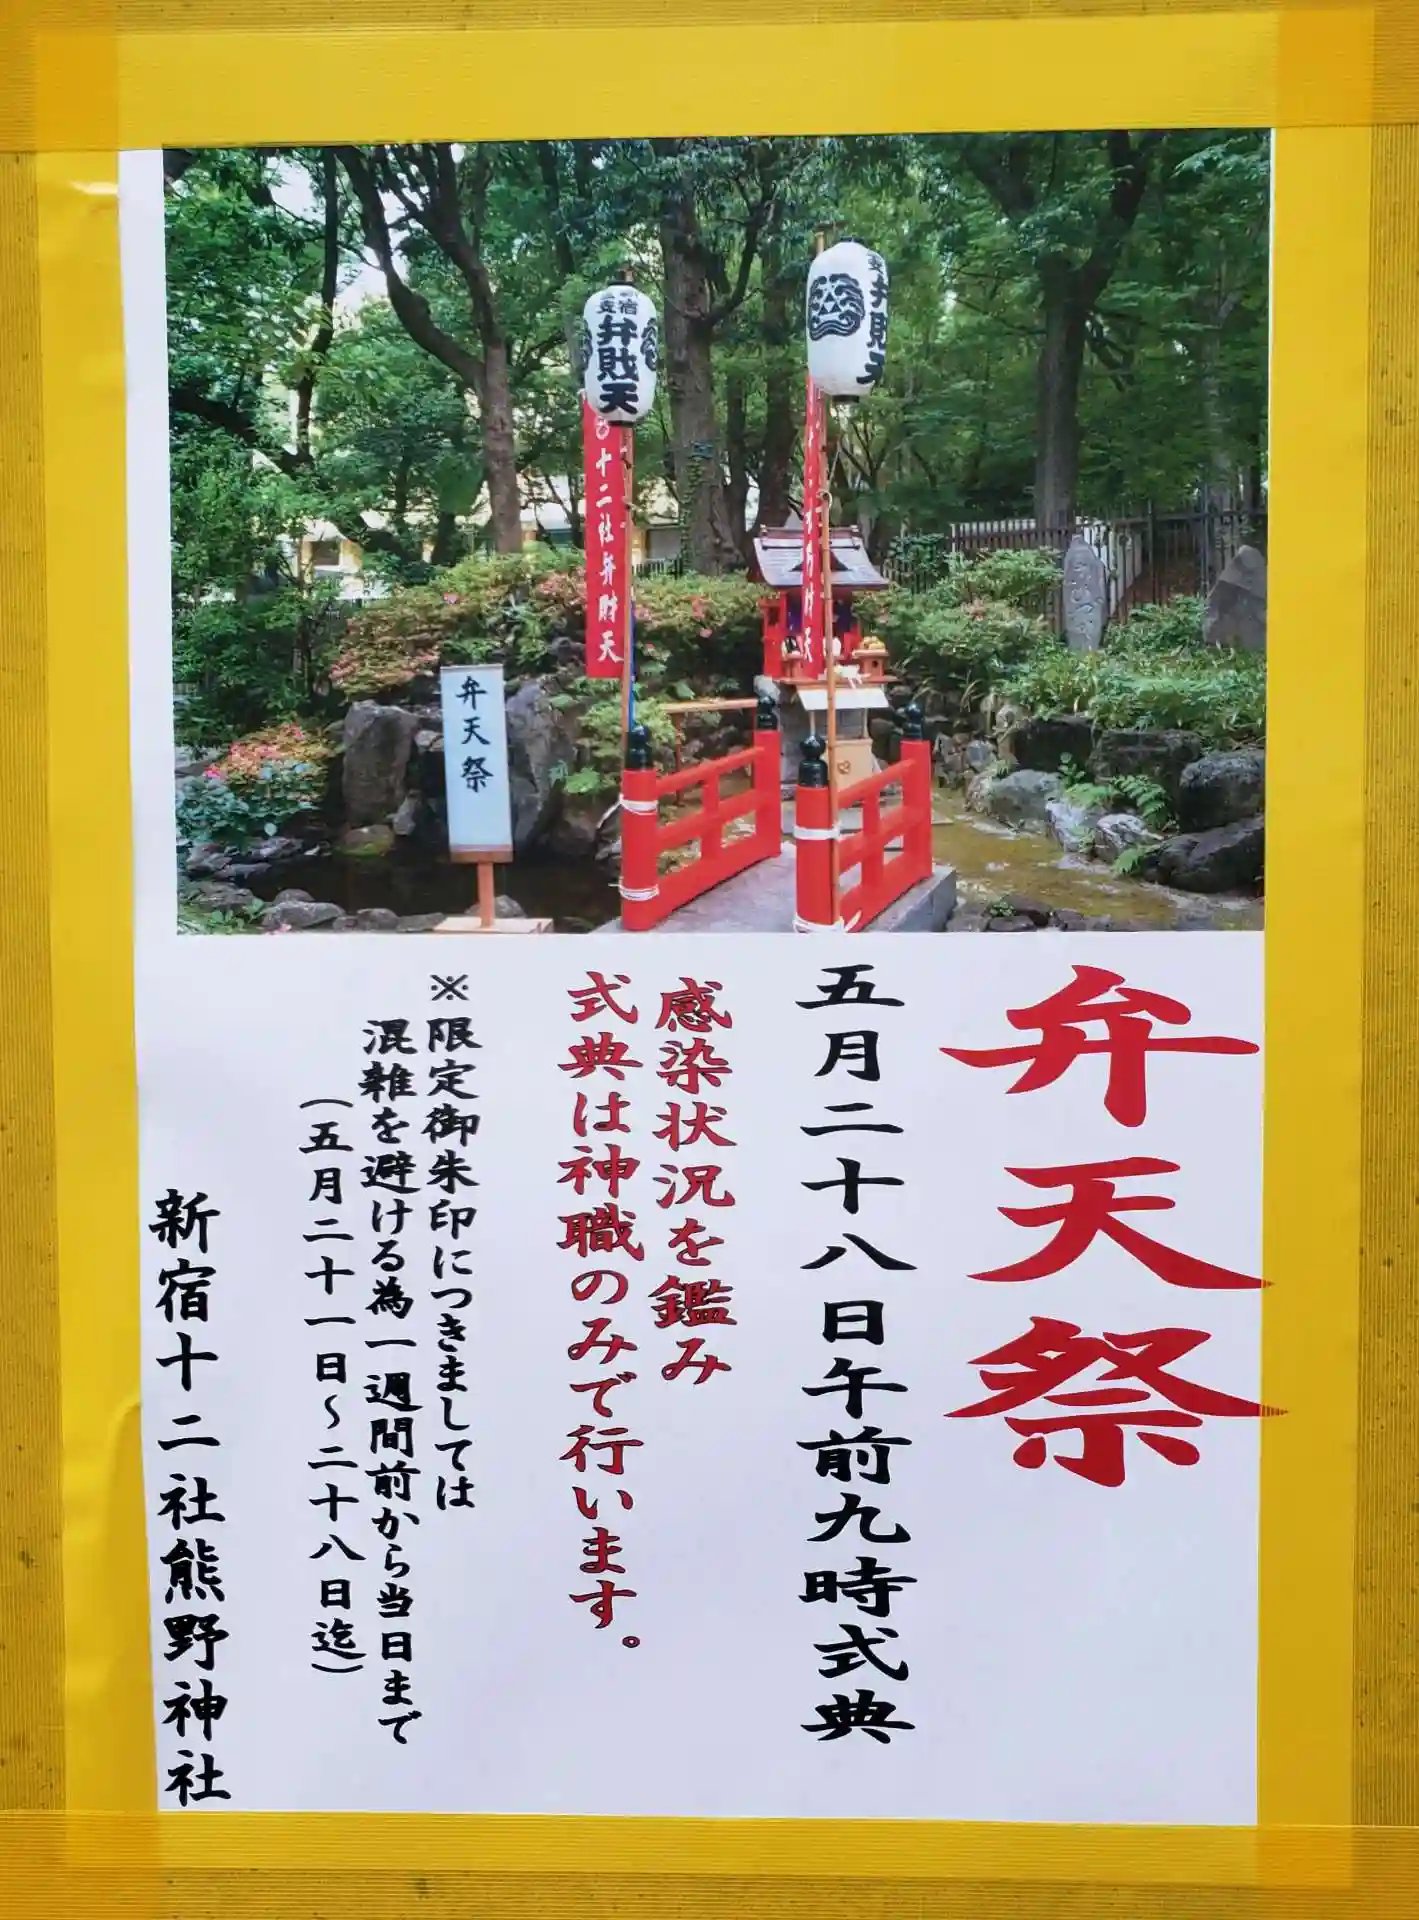 弁天祭
五月二十八日午前九時式典
感染状況を鑑み
式典は神職のみで行います。
※限定御朱印につきましては
混雑を避ける為一週間前から当日まで
(五月二十一日～二十八日迄)
新宿十二社熊野神社
弁財天
弁財天
十二社弁財天
財天
弁天祭